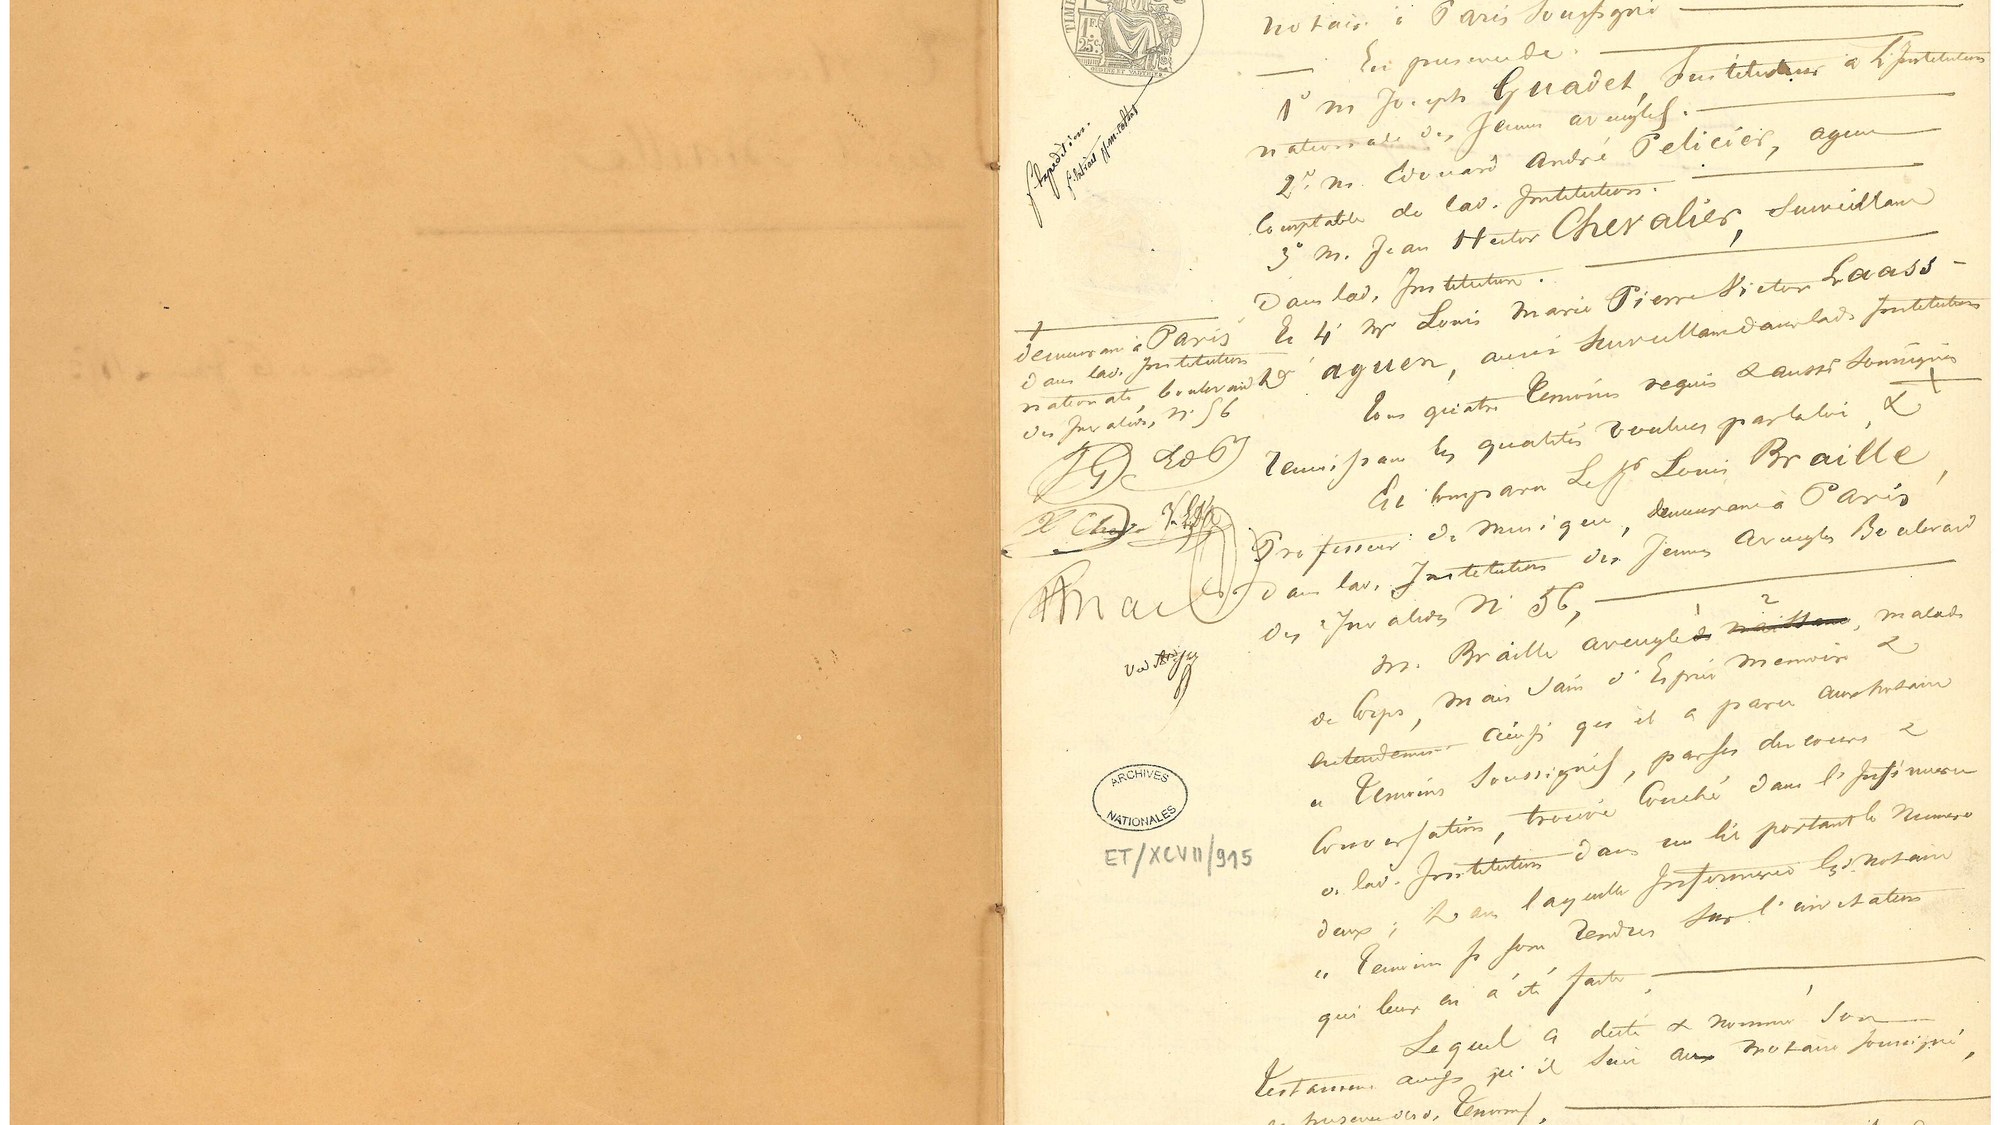 TIM
1F.
25c.
notaire à Paris soussigné
En présence de
1° M Joseph Guadet, Instituteur à l'Institution
nationale des Jeunes aveugles.
2°. M. Edouard André Pelicier, agent
Comptable de lad. Institution.
3° M. Jean Hector Chevalier, Surveillant
Dans lad. Institution.
Et 4° Mr Louis Marie Pierre Victor Laass
d'aguen, aussi surveillant dans lade Institution
Tous quatre témoins requis & aussi soussignés
réunissant les qualités voulues par la loi, &
demeurant à Paris
dans lad. Institution
nationale, boulevard
des Invalides, N° 56
JG EdP
H Che
Est comparu Le Sr Louis Braille,
Professeur de musique, demeurant à Paris
Dans lad. Institution des Jeunes Aveugles Boulevard
des Invalides N° 56,
M. Braille aveugle de naissance, malade
de Corps, mais sain d'Esprit mémoire &
entendement ainsi qu'il a paru aux notaire
& Témoins soussignés, par ses discours &
Conversation, trouvé Couché dans l'Infirmerie
de lad. Institution dans un lit portant le Numéro
deux; Dans laquelle Infirmerie lesd. notaire
& Témoins se sont rendus sur l'invitation
qui leur en a été faite.
Lequel a dicté & nommé son
Testament ainsi qu'il suit aux notaire soussigné,
Témoins,
ARCHIVES
NATIONALES
ET/XCVII/915